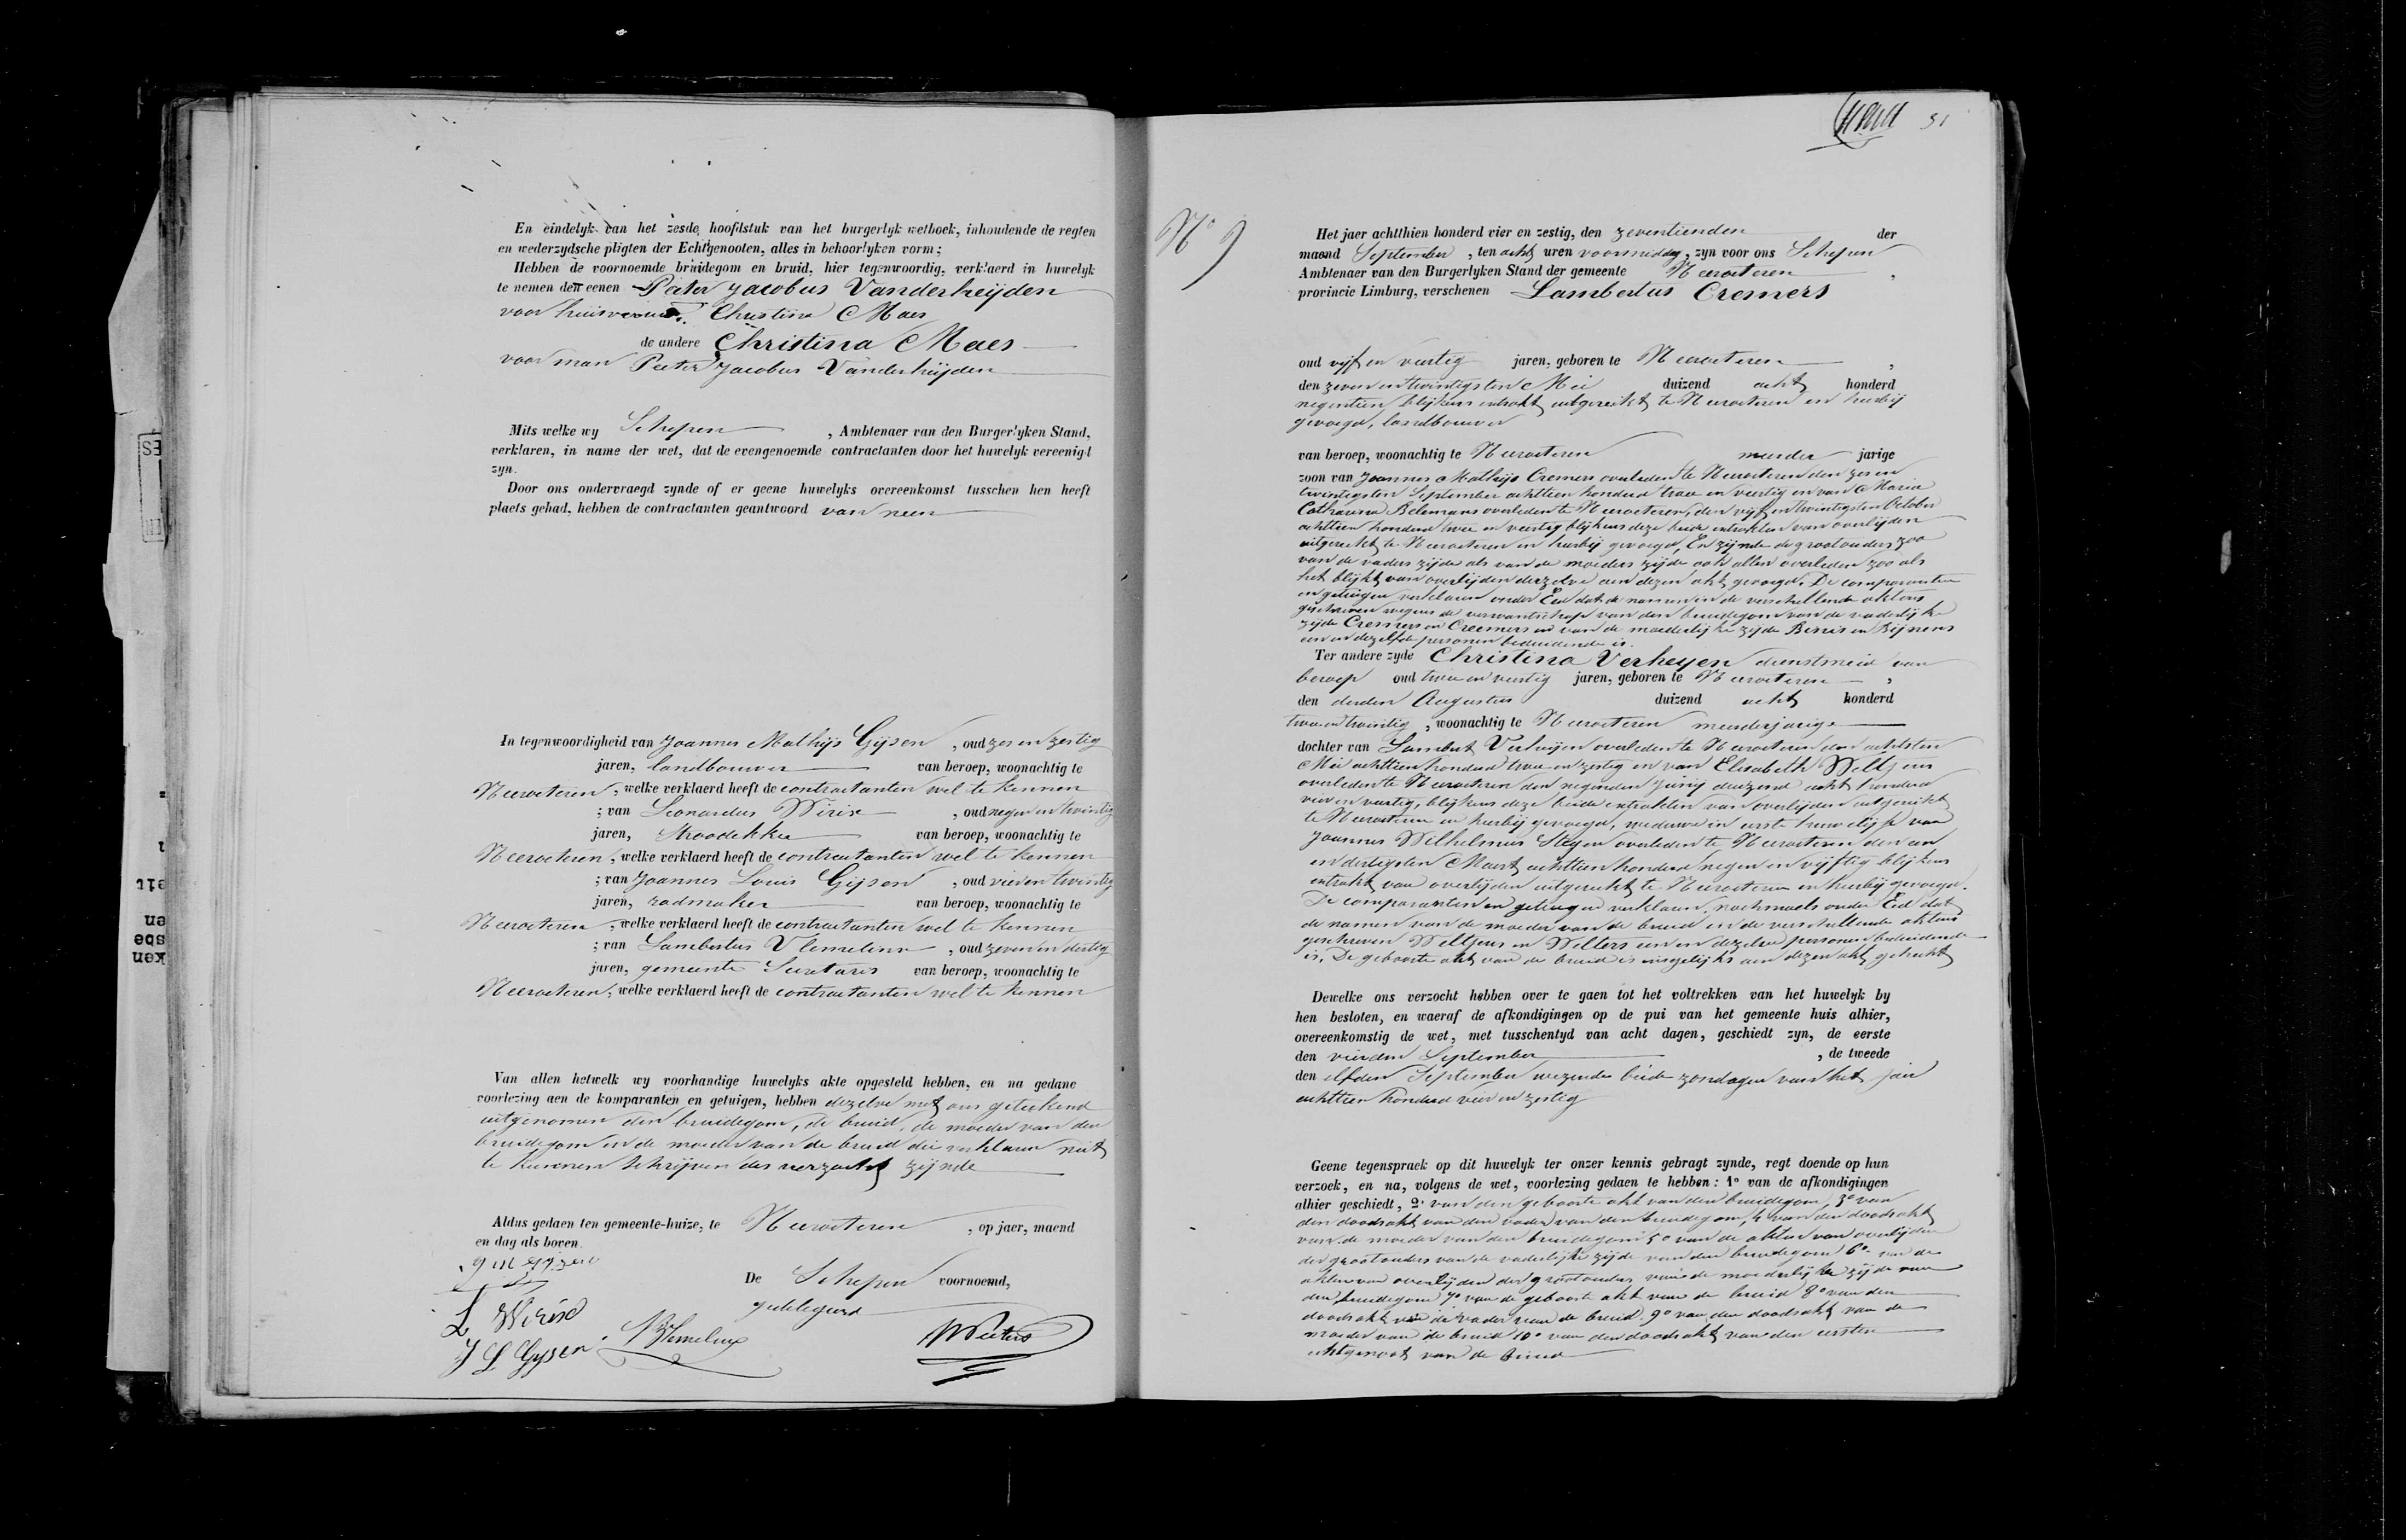 En eindelyk van het zesde hoofdstuk van het burgerlyk wetboek, inhoudende de regten
en wederzydsche pligten der Echtgenooten, alles in behoorlyken vorm;
Hebben de voornoemde bruidegom en bruid, hier tegenwoordig, verklaerd in huwelyk
te nemen den eenen Peeter Jacobus Vanderheijden
voor huisvrouw Christina Maes
de andere Christina Maes
voor man Peeter Jacobus Vanderheijden
Mits welke wy Schepen, Ambtenaer van den Burgerlyken Stand,
verklaren, in name der wet, dat de evengenoemde contractanten door het huwelyk vereenigd
zyn.
Door ons ondervraegd zynde of er geene huwelyks overeenkomst tusschen hen heeft
plaets gehad, hebben de contractanten geantwoord van neen
In tegenwoordigheid van Joannes Mathijs Gijsen, oud zes en zestig
jaren, landbouwer van beroep, woonachtig te
Neeroeteren, welke verklaerd heeft de contractanten wel te kennen
; van Leonardus Wirix, oud negen en twintig
jaren, stroodekker van beroep, woonachtig te
Neeroeteren, welke verklaerd heeft de contractanten wel te kennen
; van Joannes Louis Gijsen, oud vier en twintig
jaren, radmaker van beroep, woonachtig te
Neeroeteren, welke verklaerd heeft de contractanten wel te kennen
; van Lambertus Vlemelinx, oud zeven en dertig
jaren, gemeente Secretaris van beroep, woonachtig te
Neeroeteren, welke verklaerd heeft de contractanten wel te kennen
Van allen hetwelk wy voorhandige huwelyks akte opgesteld hebben, en na gedane
voorlezing aen de komparanten en getuigen, hebben dezelve met ons geteekend
uitgenomen den bruidegom, de bruid, de moeder van den
bruidegom en de moeder van de bruid die verklaren niet
te kunnen schrijven des verzocht zijnde
Aldus gedaen ten gemeente-huize, te Neeroeteren, op jaer, maend
en dag als boven.
De Schepen voornoemd,
gedelegeerd
L Wirix
J L Gysen
31
N° 9
Het jaer achtthien honderd vier en zestig, den zeventienden der
maend September, ten acht uren voormiddag, zyn voor ons Schepen
Ambtenaer van den Burgerlyken Stand der gemeente Neeroeteren,
provincie Limburg, verschenen Lambertus Cremers
oud vijf en veertig jaren, geboren te Neeroeteren,
den zeven en twintigsten Mei duizend acht honderd
negentien blijkens extrakt uitgereikt te Neeroeteren en hierbij
gevoegd, landbouwer
van beroep, woonachtig te Neeroeteren meerder jarige
zoon van Joannes Mathijs Cremers overleden te Neeroeteren den zes en
twintigsten September achttien honderd twee en veertig en van Maria
Catharina Belemans overleden te Neeroeteren, den vijf en twintigsten October
achttien honderd twee en veertig blijkens deze beide extrakten van overlijden
uitgereikt te Neeroeteren en hierbij gevoegd, En zijnde de grootouders zoo
van de vaders zijde als van de moeders zijde ook allen overleden zoo als
het blijkt van overlijden derzelve aen dezen akt gevoegd. De comparanten
en getuigen verklaren onder Eed dat de namen in de verschillende aktens
geschreven wegens de verwantschap van den bruidegom van de vaderlijke
zijde Cremers en Creemers en van de moederlijke zijde en Bijnens
een en dezelfde personen beduidende is.
Ter andere zyde Christina Verheyen dienstmeid van
beroep oud twee en veertig jaren, geboren te Neeroeteren,
den derden Augustus duizend acht honderd
twee en twintig, woonachtig te Neeroeteren meerderjarige
dochter van Lambert Verheijen overleden te Neeroeteren den achtsten
Mei achttien honderd twee en zestig en van Elisabeth Weltjens
overleden te Neeroeteren den negenden Junij duizend acht honderd
vier en veertig, blijkens deze beide extrakten van overlijden uitgereikt
te Neeroeteren en hierbij gevoegd, weduwe in eerste huwelijk van
Joannes Wilhelmus Stegen overleden te Neeroeteren den een
en dertigsten Maert achttien honderd negen en vijftig blijkens
extrakt van overlijden uitgereikt te Neeroeteren en hierbij gevoegd.
De comparanten en getuigen verklaren, nochmaels onder Eed dat
de namen van de moeder van de bruid in de verschillende aktens
geschreven Weltjens en Welters een en dezelve personen beduidende
is, De geboorte akt van de bruid is insgelijks aen dezen akt gehecht
Dewelke ons verzocht hebben over te gaen tot het voltrekken van het huwelyk by
hen besloten, en waeraf de afkondigingen op de pui van het gemeente huis alhier,
overeenkomstig de wet, met tusschentyd van acht dagen, geschiedt zyn, de eerste
den vierden September, de tweede
den elfden September wezende beide zondagen van het jaer
achttien honderd vier en zestig
Geene tegenspraek op dit huwelyk ter onzer kennis gebragt zynde, regt doende op hun
verzoek, en na, volgens de wet, voorlezing gedaen te hebben: 1° van de afkondigingen
alhier geschiedt, 2° van den geboorte akt van den bruidegom, 3° van
den doodsakt van den vader van den bruidegom, 4 van den doodsakt
van de moeder van den bruidegom 5° van de akten van overlijden
der grootouders van de vaderlijke zijde van den bruidegom 6° van de
akten van overlijden der grootouders van de moederlijke zijde van
den bruidegom 7° van de geboorte akt van de bruid 8° van den
doodsakt van de vader van de bruid. 9° van den doodsakt van de
moeder van de bruid 10° van den doodsakt van den eersten
echtgenoot van de bruid